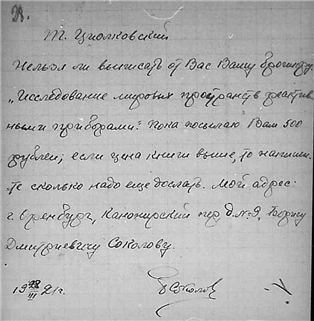 Т. Циолковский
Нельзя ли выписать от Вас Вашу брошюру
"Исследование мировых пространств реактив-
ными приборами." Пока посылаю Вам 500
рублей, если цена книги выше, то напиши-
те сколько надо еще дослать. Мой адрес:
г. Оренбург, Канонирский пер. д. №9, Борису
Дмитриевичу Соколову.
19 28/III 21 г. БСоколов